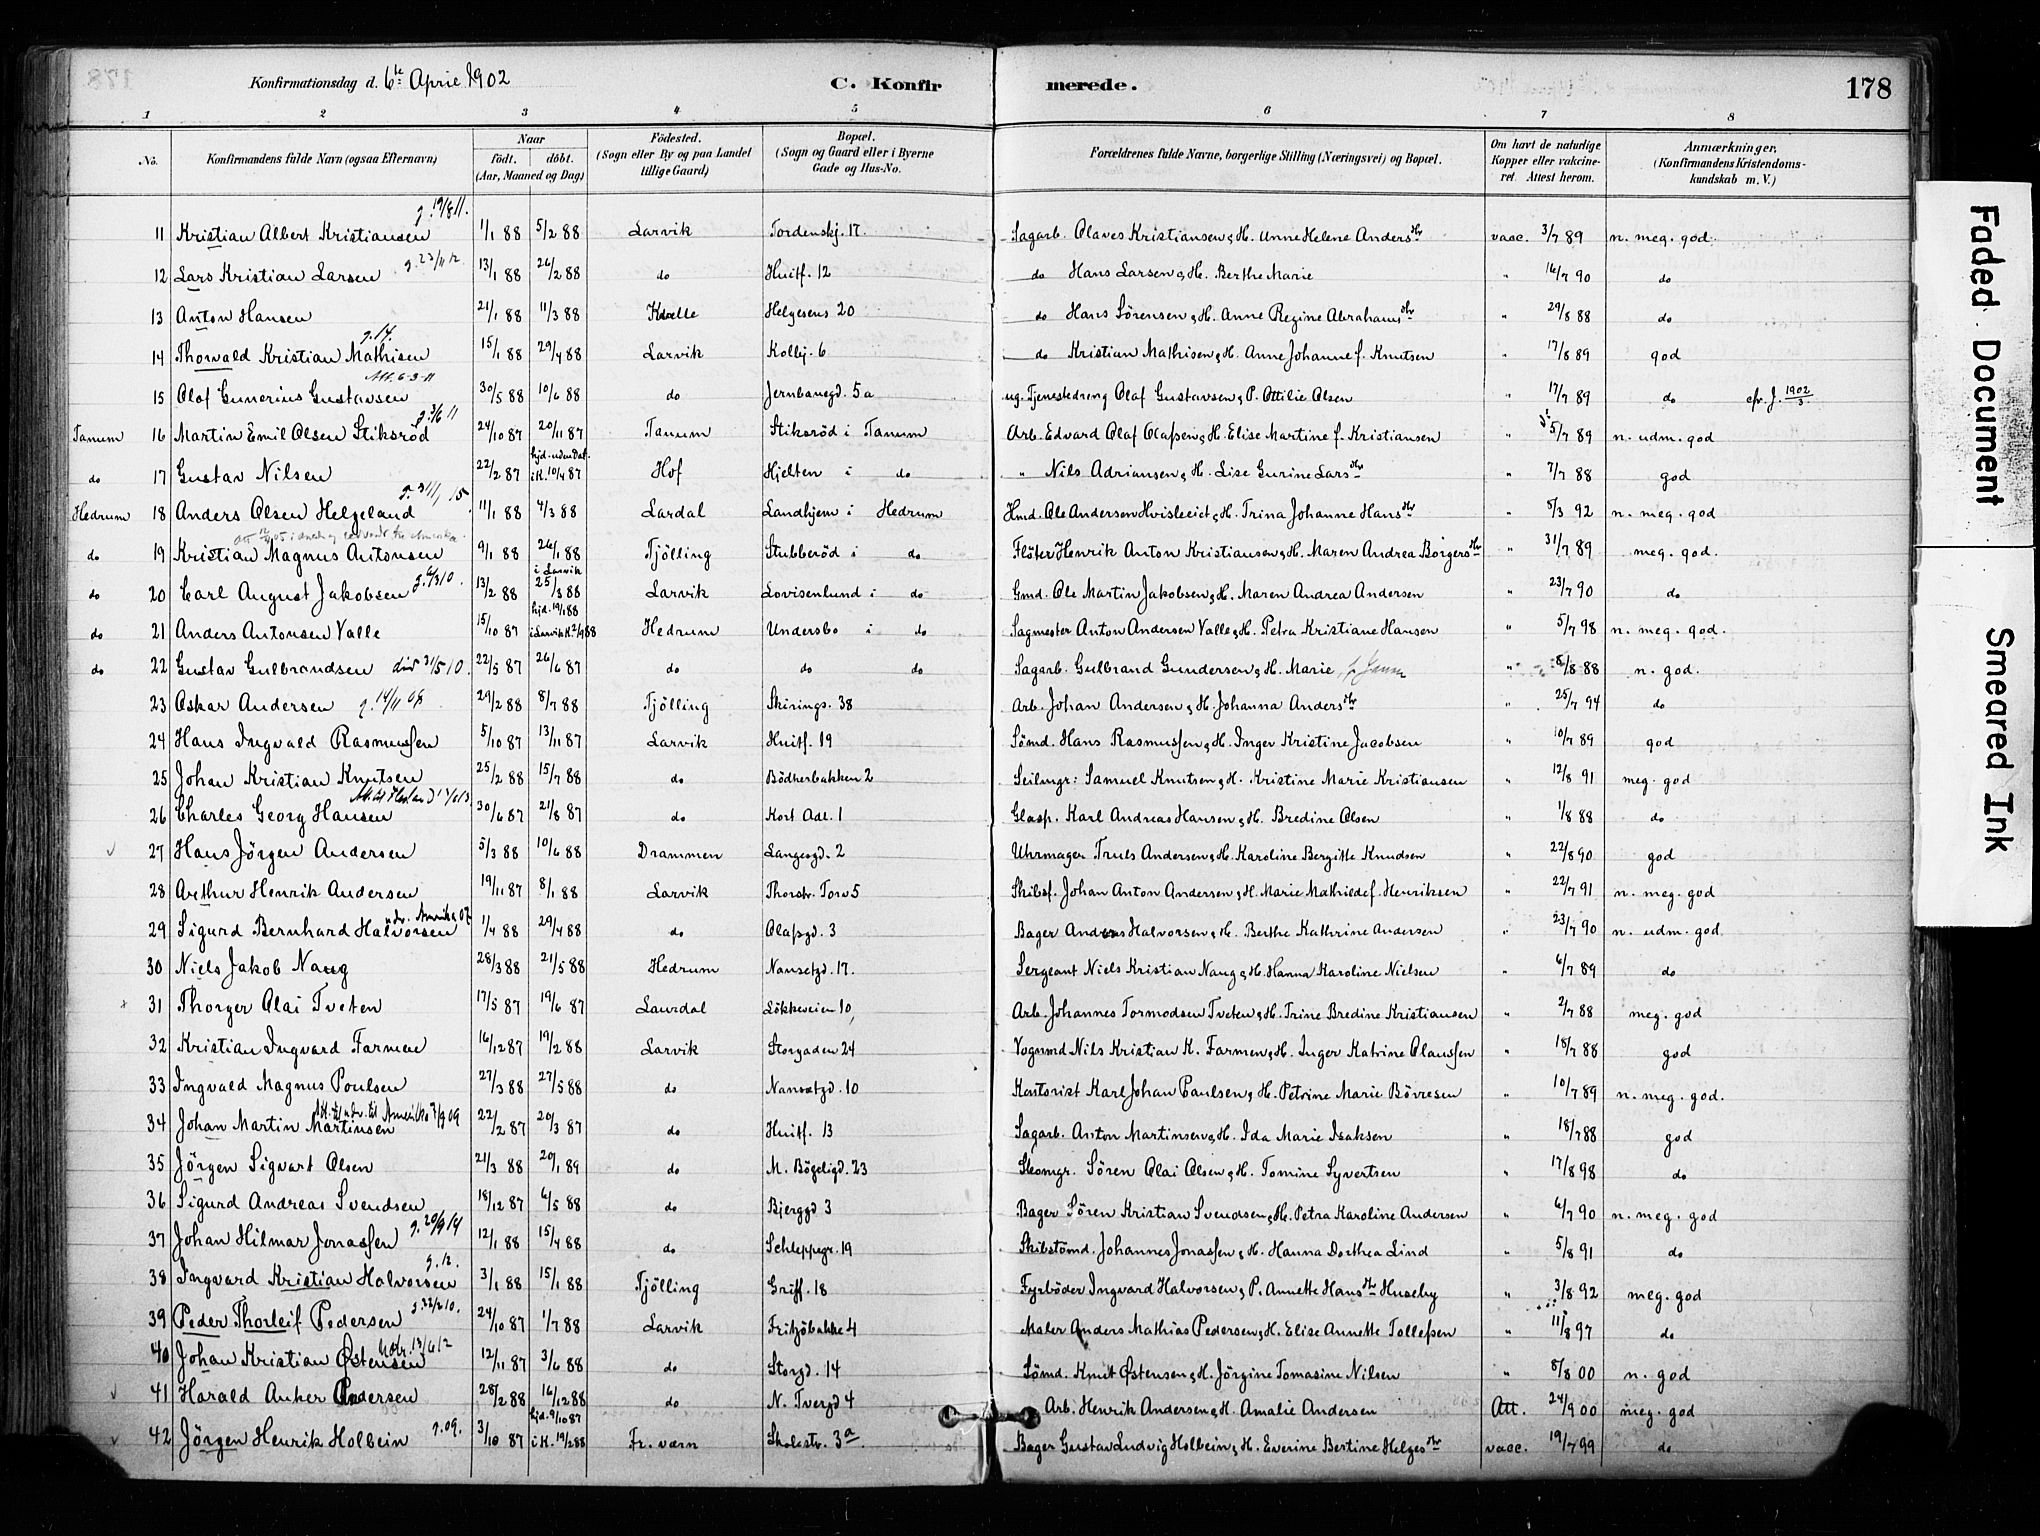 Konfirmationsdag d. 6te April 1902
C. Konfir merede.
178
1 2 3 4 5 6 7 8
No. Konfirmandens fulde Navn (ogsaa Efternavn) Naar födt. döbt. (Aar, Maaned og Dag) Födested. (Sogn eller By og paa Landet tillige Gaard) Bopæl. (Sogn og Gaard eller i Byerne Gade og Hus-No. Forældrenes fulde Navne, borgerlige Stilling (Næringsvei) og Bopæl. Om havt de naturlige Kopper eller vaccineret. Attest herom. Anmærkninger, (Konfirmandens Kristendomskundskab m. V.)
11 Kristian Albert Kristiansen g. 19/8 11. 1/1 88 5/2 88 Larvik Tordenskj. 17 Sagarb. Olaves Kristiansen & H. Anne Helene Andersdtr vacc. 3/7 89 n. meg. god
12 Lars Kristian Larsen g. 23/11 12. 13/1 88 26/2 88 do Huitf. 12 do Hans Larsen & H. Berthe Marie " 16/7 90 do
13 Anton Hansen 21/1 88 11/3 88 Kvelle Helgesens 20 do Hans Sörensen & H. Anne Regine Abrahamsdtr " 29/8 88 do
14 Thorvald Kristian Mathisen g. 14. 15/1 88 29/4 88 Larvik Kolbj. 6 do Kristian Mathisen & H. Anne Johanne f. Knutsen " 17/8 89 god
15 Olaf Gunerius Gustavsen Att. 6-3-11 30/5 88 10/6 88 do Jernbanegd. 5a ug. Tjenestedreng Olaf Gustavsen & P. Ottilie Olsen " 17/7 89 do cfr. J. 1902/3
Tanum 16 Martin Emil Olsen Stiksröd g. 3/6 11 24/10 87 20/11 87 Tanum Stiksröd i Tanum Arb. Edvard Olaf Olafsen & H. Elise Martine f. Kristiansen " 5/7 89 n. udm. god
do 17 Gustav Nilsen 22/2 87 hjd. uden Dat. i K. 10/4 87 Hof Hjelten i do " Nils Adriansen & H. Lise Gurine Larsdtr " 7/7 88 god
Hedrum 18 Anders Olsen Helgeland 11/1 88 4/3 88 Lardal Landhjem i Hedrum Hmd. Ole Andersen Hvisleeiet & H. Trina Johanne Hansdtr " 8/3 92 n. meg. god
do 19 Kristian Magnus Antonsen 9/1 88 26/1 88 i Larvik Tjölling Stubberöd i do Flöter Henrik Anton Kristiansen & H. Maren Andrea Börgersdtr " 31/7 89 meg. god.
do 20 Carl August Jakobsen 13/2 88 25/3 88 Larvik Lovisenlund i do Gmd. Ole Martin Jakobsen & H. Maren Andrea Andersen " 23/7 90 do
do 21 Anders Antonsen Valle 15/10 87 hjd. 19/1 88 i Larvik K. 2/4 88 Hedrum Undersbo i do Sagmester Anton Andersen Valle & H. Petra Kristiane Hansen " 5/7 98 n. meg. god.
do 22 Gustav Gulbrandsen 31/5 10. 22/5 87 26/6 87 do do do Sagarb. Gulbrand Gundersen & H. Marie " 8/8 88 n. god.
23 Oskar Andersen g. 14/11 08 29/2 88 8/7 88 Tjölling Skirings. 38 Arb. Johan Andersen & H. Johanna Andersdtr " 25/7 94 do
24 Hans Ingvald Rasmussen 5/10 87 13/11 87 Larvik Huitf. 19 Sömd. Hans Rasmussen & H. Inger Kristine Jacobsen " 10/7 89 god
25 Johan Kristian Knutsen 25/2 88 15/7 88 do Bödkerbakken 2 Seilmgr: Samuel Knutsen & H. Kristine Marie Kristiansen " 12/8 91 meg. god
26 Charles Georg Hansen 30/6 87 21/8 87 do Kort Adl. 1 Glasp. Karl Andreas Hansen & H. Bredine Olsen " 1/8 88 do
27 Hans Jörgen Andersen 5/3 88 10/6 88 Drammen Langesgd. 2 Uhrmager Truls Andersen & H. Karoline Bergitte Knudsen " 22/8 90 god
28 Arthur Henrik Andersen 19/11 87 8/1 88 Larvik Thorstr. Torv 5 Skibsf. Johan Anton Andersen & H. Marie Mathilde f. Henriksen " 22/7 91 n. meg. god
29 Sigurd Bernhard Halvorsen udv. Amerika 07 1/4 88 29/4 88 do Olafsgd. 3 Bager Anders Halvorsen & H. Berthe Kathrine Andersen " 23/7 90 n. udm. god
30 Niels Jakob Naug 28/3 88 21/5 88 Hedrum Nansetgd. 17. Sergeant Niels Kristian Naug & H. Hanna Karoline Nielsen " 6/7 89 do
31 Thorger Olai Tveten 17/5 87 19/6 87 Laurdal Lökkeveien 10, Arb. Johannes Tormodsen Tveten & H. Trine Bredine Kristiansen " 2/7 88 meg. god
32 Kristian Ingvard Farmen 16/12 87 19/2 88 Larvik Storgaden 24 Vognmd Nils Kristian K. Farmen & H. Inger Katrine Claussen " 18/7 88 god
33 Ingvald Magnus Poulsen 27/3 88 27/5 88 do Nansetgd. 10 Kontorist Karl Johan Paulsen & H. Petrine Marie Bövresen " 10/7 89 n. meg. god.
34 Johan Martin Martinsen Att. udv. til Amerika 7/9 09 22/2 87 20/3 87 do Huitf. 13 Sagarb. Anton Martinsen & H. Ida Marie Isaksen " 18/7 88 god
35 Jörgen Sigvart Olsen 21/3 88 20/1 89 do M. Bögeligd. 23 Skomgr. Sören Olai Olsen & H. Tomine Syvertsen " 17/8 98 do
36 Sigurd Andreas Svendsen 18/12 87 6/5 88 do Bjerggd 3 Bager Sören Kristian Svendsen & H. Petra Karoline Andersen " 6/7 90 n. meg. god
37 Johan Hilmar Jonassen g. 20/9 14 12/1 88 15/4 88 do Schleppegr. 19 Skibstömd. Johannes Jonassen & H. Hanna Dorthea Lind " 5/8 91 do
38 Ingvard Kristian Halvorsen g. 12. 3/1 88 15/1 88 Tjölling Griff. 18 Fyrböder Ingvard Halvorsen & P. Annette Hansdtr Huseby " 3/8 92 meg. god
39 Peder Thorleif Pedersen 24/10 87 1/7 88 Larvik Fritzöbakke 4 Maler Anders Mathias Pedersen & H. Elise Annette Tollefsen " 11/8 97 do
40 Johan Kristian Östensen 13/6 12 12/11 87 3/6 88 do Storgd. 14 Sömd. Knut Östensen & H. Jörgine Tomasine Nilsen " 8/8 00 n. god
41 Harald Anker Andersen 28/2 88 16/12 88 do N. Tvergd 4 Arb. Henrik Andersen & H. Amalie Andersen Att. 24/9 00 meg. god
42 Jörgen Henrik Holbein g. 09. 3/10 87 hjd. 9/10 87 i K. 19/2 88 Fr. værn Skolestr. 3a. Bager Gustav Ludvig Holbein & H. Everine Bertine Helgesdtr vacc. 19/7 99 do
Faded Document
Smeared Ink